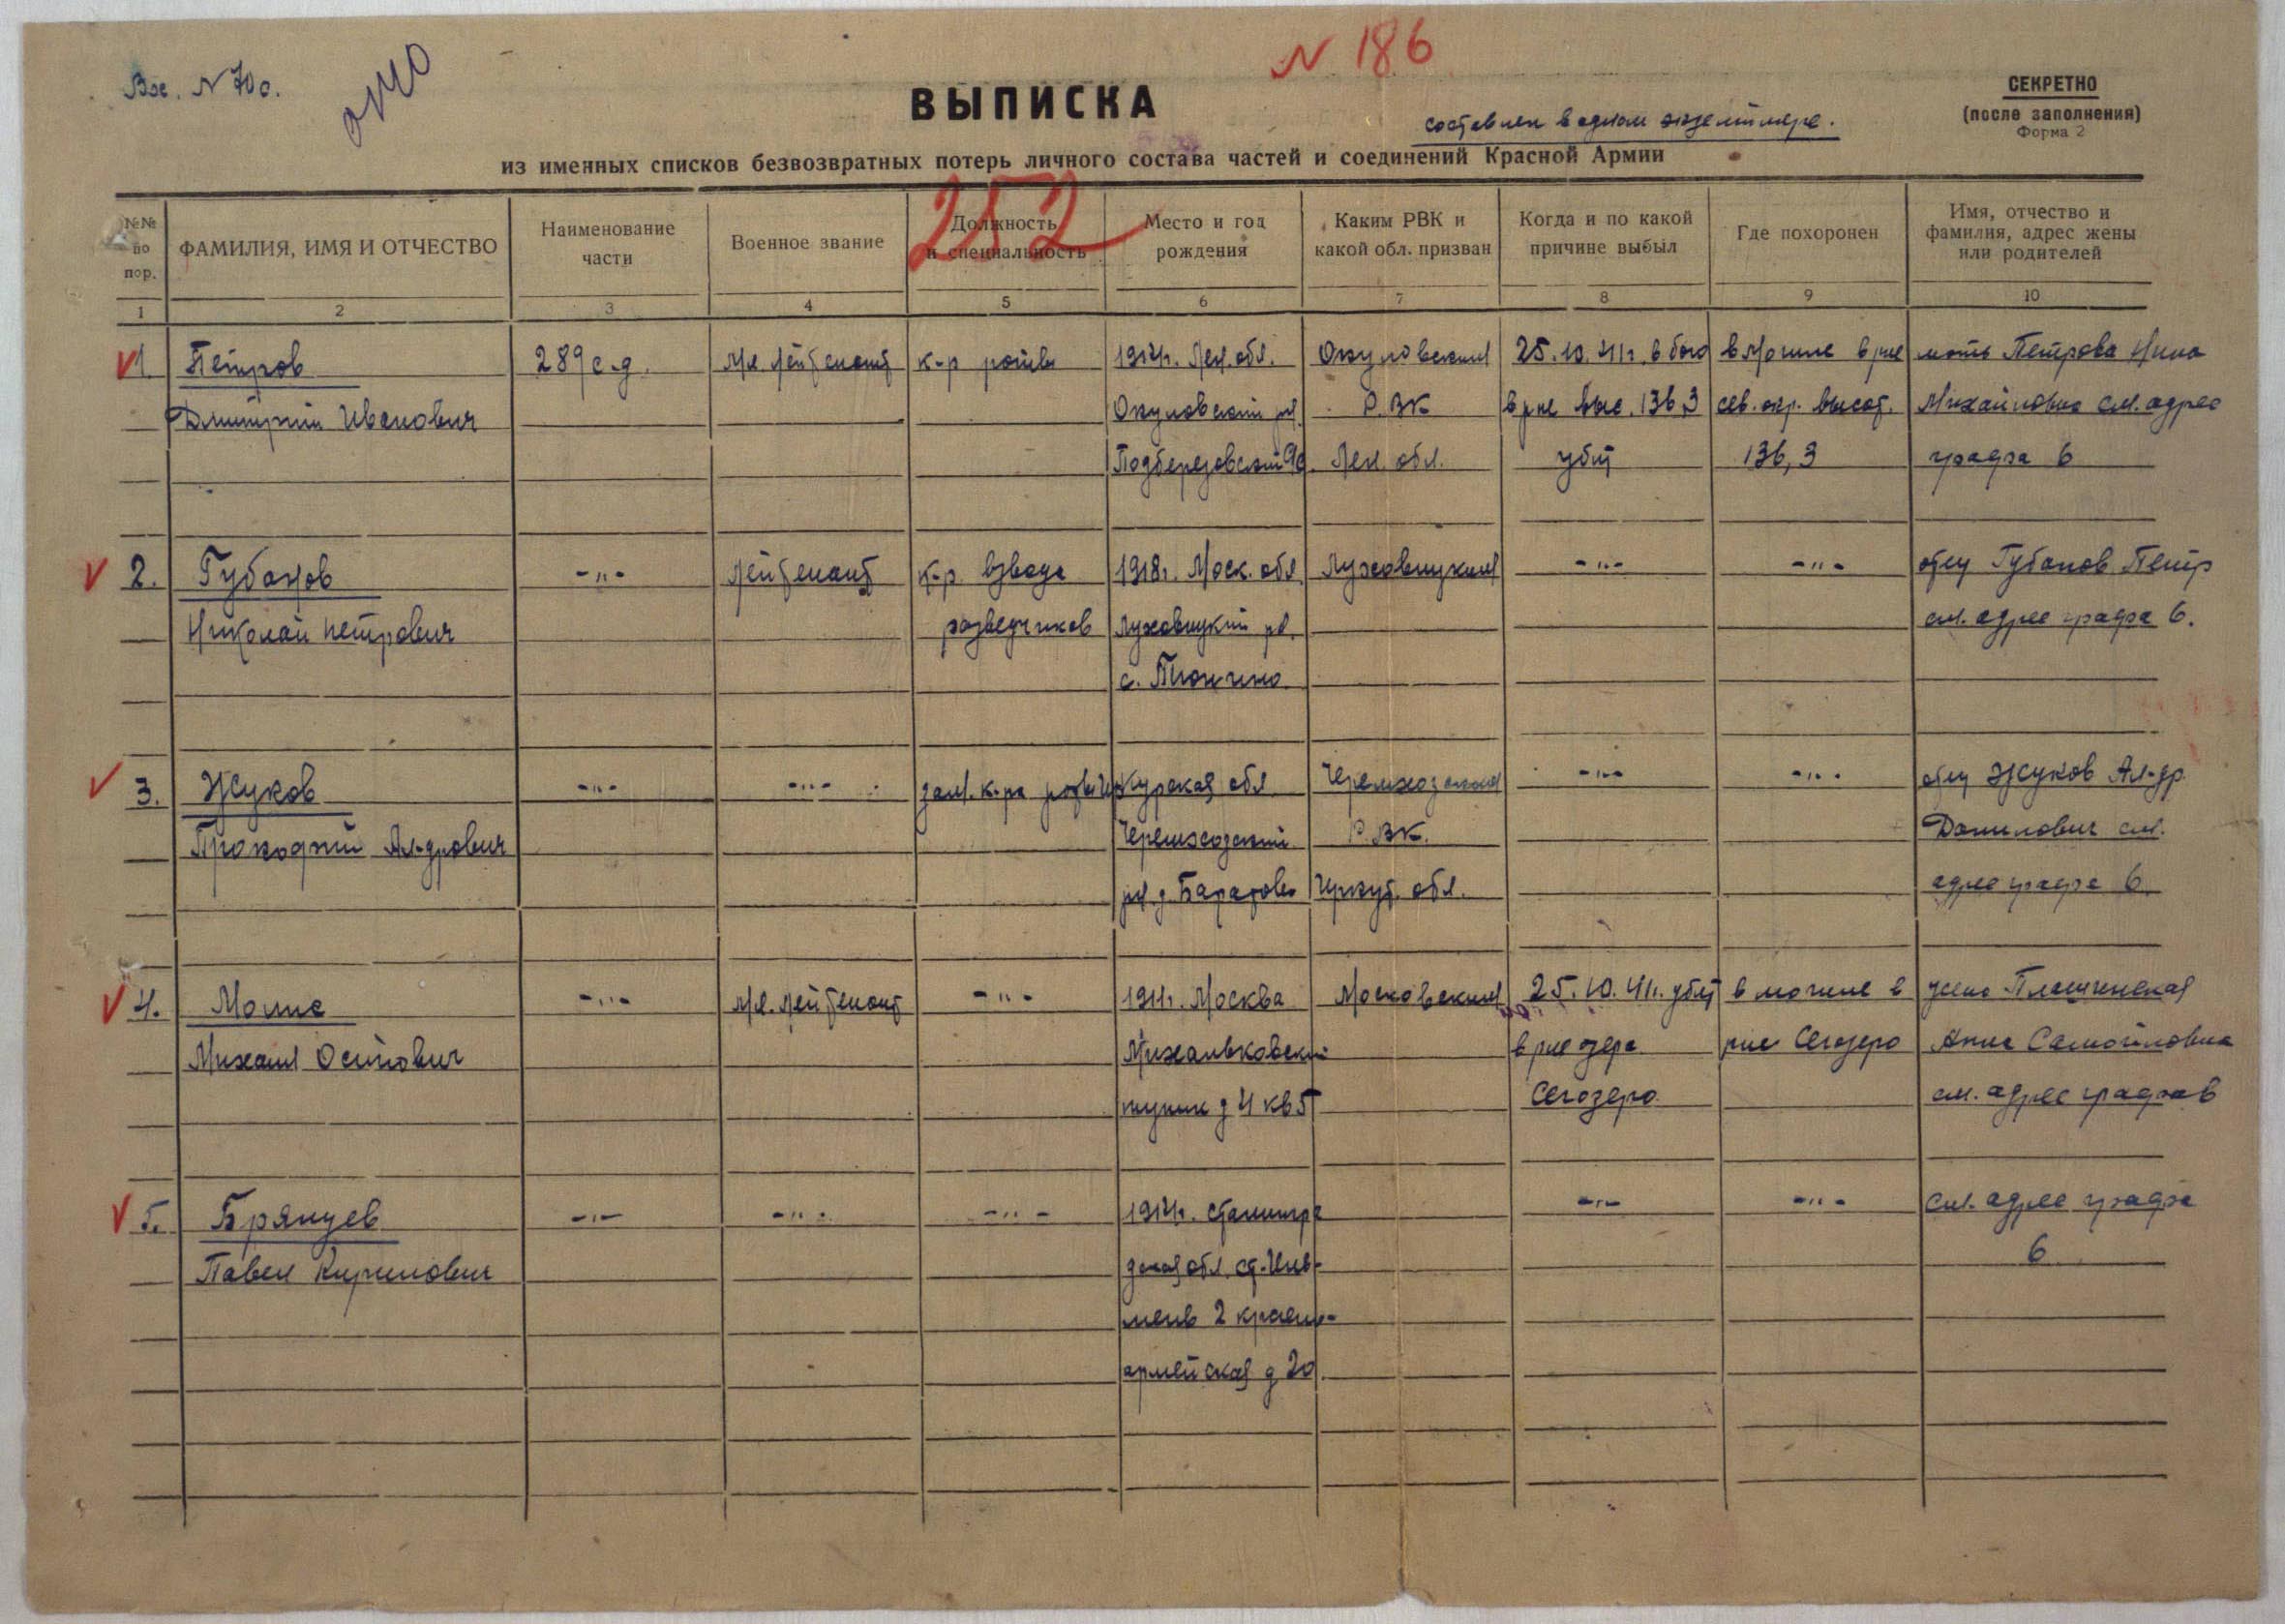 Вх. N 70с.
N 186
ВЫПИСКА
составлен в одном экземпляре.
СЕКРЕТНО
(после заполнения)
Форма 2
из именных списков безвозвратных потерь личного состава частей и соединений Красной Армии
252
№№ по пор.
ФАМИЛИЯ, ИМЯ И ОТЧЕСТВО
Наименование части
Военное звание
Должность и специальность
Место и год рождения
Каким РВК и какой обл. призван
Когда и по какой причине выбыл
Где похоронен
Имя, отчество и фамилия, адрес жены или родителей
1 2 3 4 5 6 7 8 9 10
1. Петров 289 с.д. Мл. лейтенант к-р роты 1914г. Лен. обл. Окуловским 25.10.41г. в бою в могиле в рне мать Петрова Нина
Дмитрий Иванович Окуловский р-н. Р.ВК в рне выс. 136,3 сев. окр. высот. Михайловна см. адрес
Подберезовский Лен. обл. убит 136,3 графа 6
2. Губанов -"- лейтенант к-р взвода 1918г. Моск. обл. Луховицким -"- -"- отец Губанов Петр
Николай Петрович разведчиков Луховицкий р-н. см. адрес графа 6.
с. Тюнино
3. Жуков -"- -"- зам. к-ра роты Курская обл -"- -"- отец Жуков Ал-др
Прокофий Ал-дрович Черемховский Р.ВК. Данилович см.
Иркут. обл. адрес графа 6.
4. Молис -"- Мл. лейтенант -"- 1911г. Москва Московским 25.10.41г. убит в могиле в жена
Михаил Осипович Михальковский в рне озера рне Сегозеро Анна Самойловна
тупик д 4 кв 5 Сегозеро см. адрес графа 6
5. Брянцев -"- -"- -"- 1914г. Сталингра -"- -"- см. адрес графа
Павел Кирилович дская обл. ст. Иль- 6
мень 2 красно-
армейская д 20